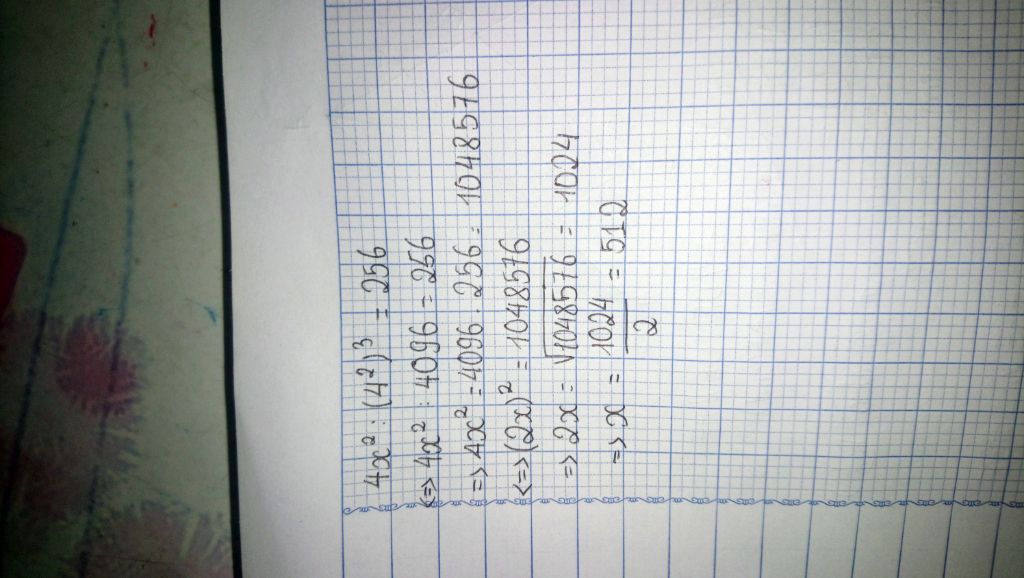 4x² : (4²)³ = 256
<=> 4x² : 4096 = 256
=> 4x² = 4096 . 256 = 1048576
<=> (2x)² = 1048576
=> 2x = √1048576 = 1024
=> x = 1024/2 = 512